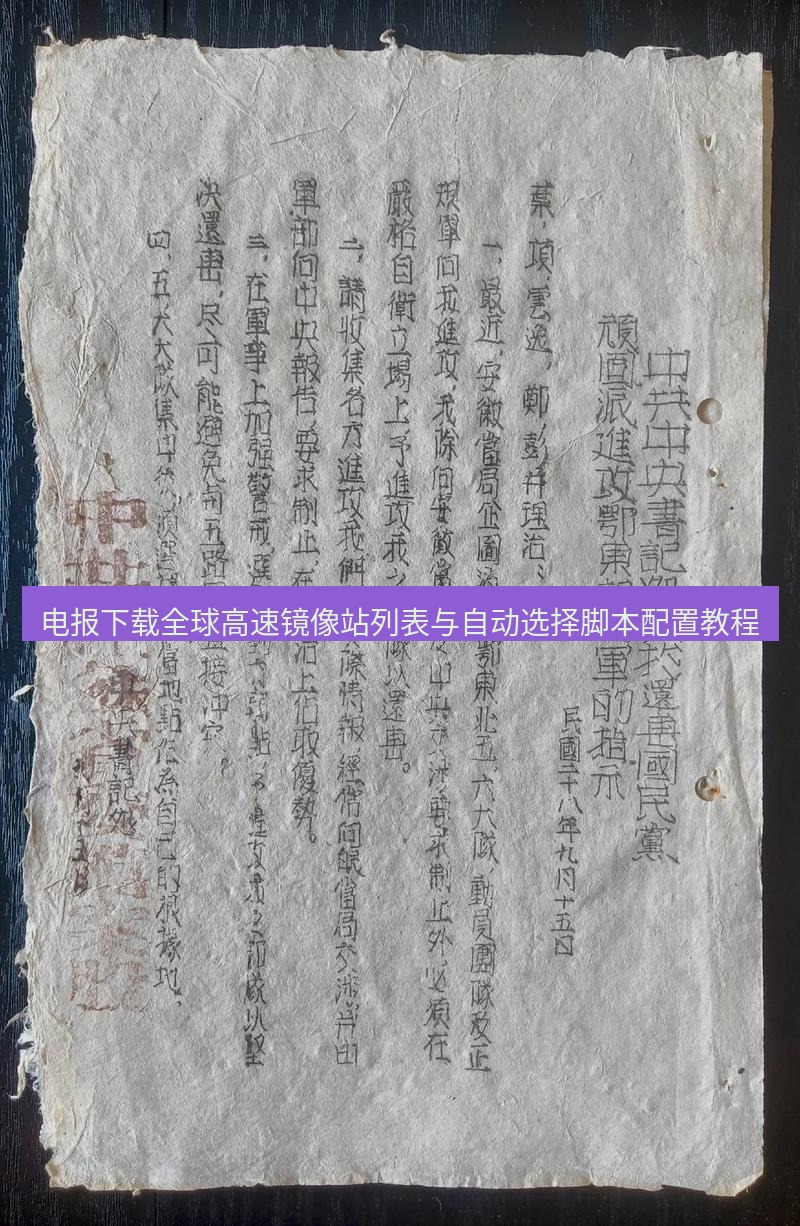 中共中央書記
我還再國民黨
頑固派進攻鄂東
軍的指示
民國二十八年九月十五日
葉，項，雲逸，鄭，彭并理治：
一，最近，安徽當局企圖
鄂東北五，六大隊，動員團隊及正
規軍向我進攻，我除向安徽當
中央交涉，要求制止外，必須在
嚴格自衛立場上予進攻我之
隊以還再。
二，請收集各方進攻我們
際情報，經常向
當局交涉，并由
軍部向中央報告，要求制止，在
治上佔取優勢。
三，在軍事上加强警戒，選
弱點，予進攻者之部隊以堅
決還再，尽可能避免和五路
直接冲突。
四，五，六大隊集中
當地點作為自己的根據地。
中央書記処
电报下载全球高速镜像站列表与自动选择脚本配置教程